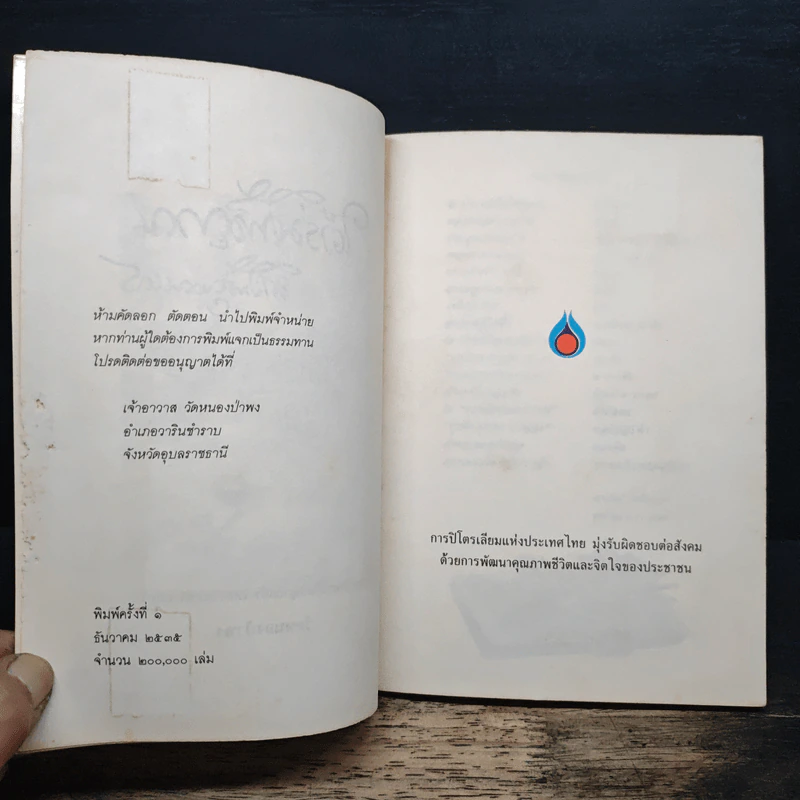 ห้ามคัดลอก ตัดตอน นำไปพิมพ์จำหน่าย
หากท่านผู้ใดต้องการพิมพ์แจกเป็นธรรมทาน
โปรดติดต่อขออนุญาตได้ที่
เจ้าอาวาส วัดหนองป่าพง
อำเภอวารินชำราบ
จังหวัดอุบลราชธานี
พิมพ์ครั้งที่ ๑
ธันวาคม ๒๕๓๕
จำนวน ๒๐๐,๐๐๐ เล่ม
การปิโตรเลียมแห่งประเทศไทย มุ่งรับผิดชอบต่อสังคม
ด้วยการพัฒนาคุณภาพชีวิตและจิตใจของประชาชน